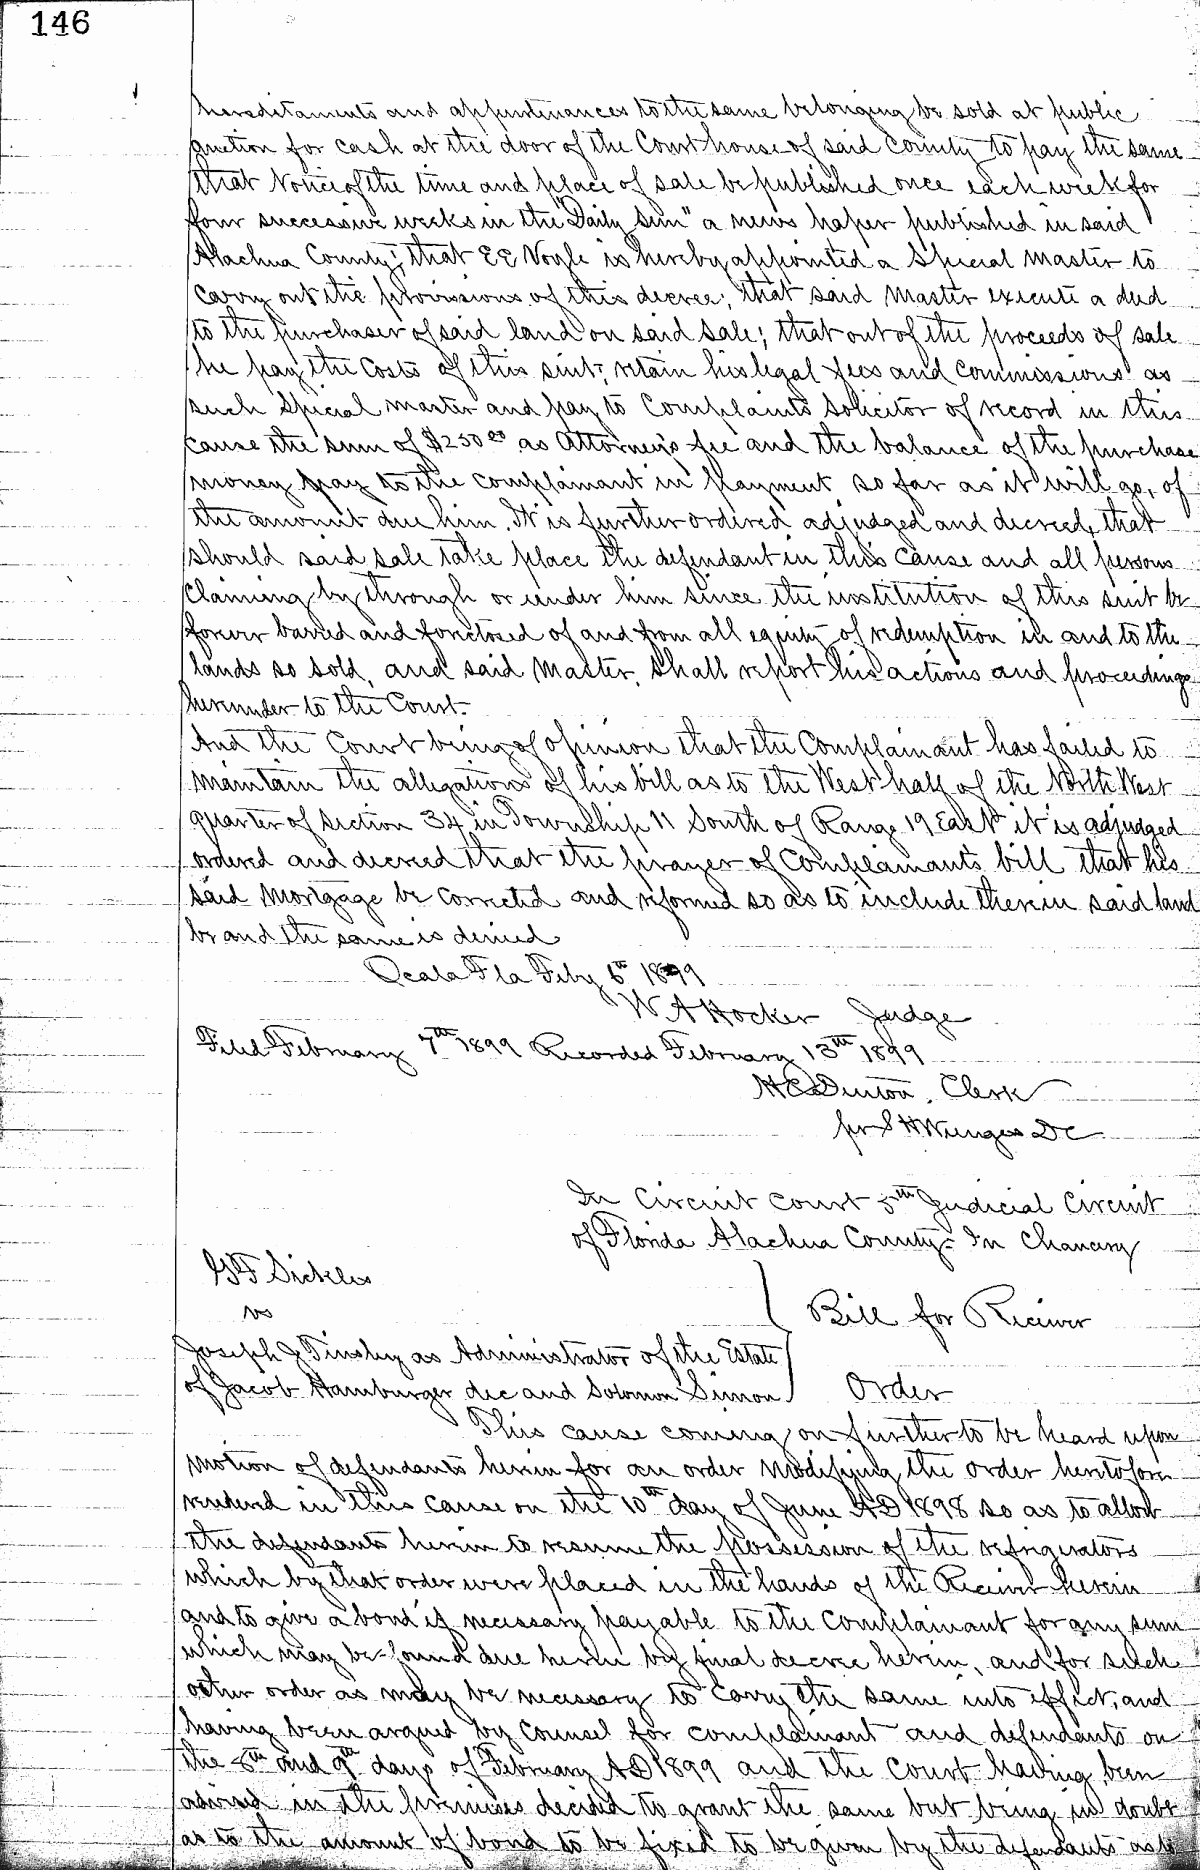 146
hereditaments and appurtenances to the same belonging be sold at public
auction for cash at the door of the Court house of said County to pay the same
that Notice of the time and place of sale be published once each week for
four successive weeks in the "Daily Sun" a news paper published in said
Alachua County; that E E Voyle is hereby appointed a Special Master to
carry out the provisions of this decree; that said Master execute a deed
to the purchaser of said land on said sale; that out of the proceeds of sale
he pay the Costs of this suit; retain his legal fees and Commissions as
such Special Master and pay to Complaints Solicitor of record in this
cause the sum of $250 00 as Attorney's fee and the balance of the purchase
money pay to the complainant in payment so far as it will go, of
the amount due him. It is further ordered adjudged and decreed, that
should said sale take place the defendant in this cause and all persons
claiming by through or under him since the institution of this suit be
forever barred and foreclosed of and from all equity of redemption in and to the
lands so sold, and said Master, shall report his actions and proceedings
hereunder to the Court.
And the Court being of opinion that the Complainant has failed to
maintain the allegations of his bill as to the West half of the North West
quarter of Section 34 in Township 11 South of Range 19 East it is adjudged
ordered and decreed that the prayer of Complainants bill that his
said Mortgage be corrected and reformed so as to include therein said land
be and the same is denied
Ocala Fla Feby 6th 1899
W A Hocker Judge
Filed February 7th 1899 Recorded February 13th 1899
H C Denton, Clerk
per S H Wienges D C
In Circuit Court 5th Judicial Circuit
of Florida Alachua County. In Chancery
G F Sickles
vs
Bill for Receiver
Joseph J Tinsley as Administrator of the Estate
of Jacob Hamburger dec and Solomon Simon
Order
This cause coming on further to be heard upon
motion of defendants herein for an order modifying the order heretofore
rendered in this cause on the 10th day of June AD 1898 so as to allow
the defendants herein to resume the possession of the refrigerators
which by that order were placed in the hands of the Receiver herein
and to give a bond if necessary payable to the complainant for any sum
which may be found due herein by final decree herein, and for such
other order as may be necessary to carry the same into effect, and
having been argued by Counsel for complainant and defendants on
the 8th and 9th days of February AD 1899 and the Court having been
advised in the premises decided to grant the same but being in doubt
as to the amount of bond to be fixed to be given by the defendants as to